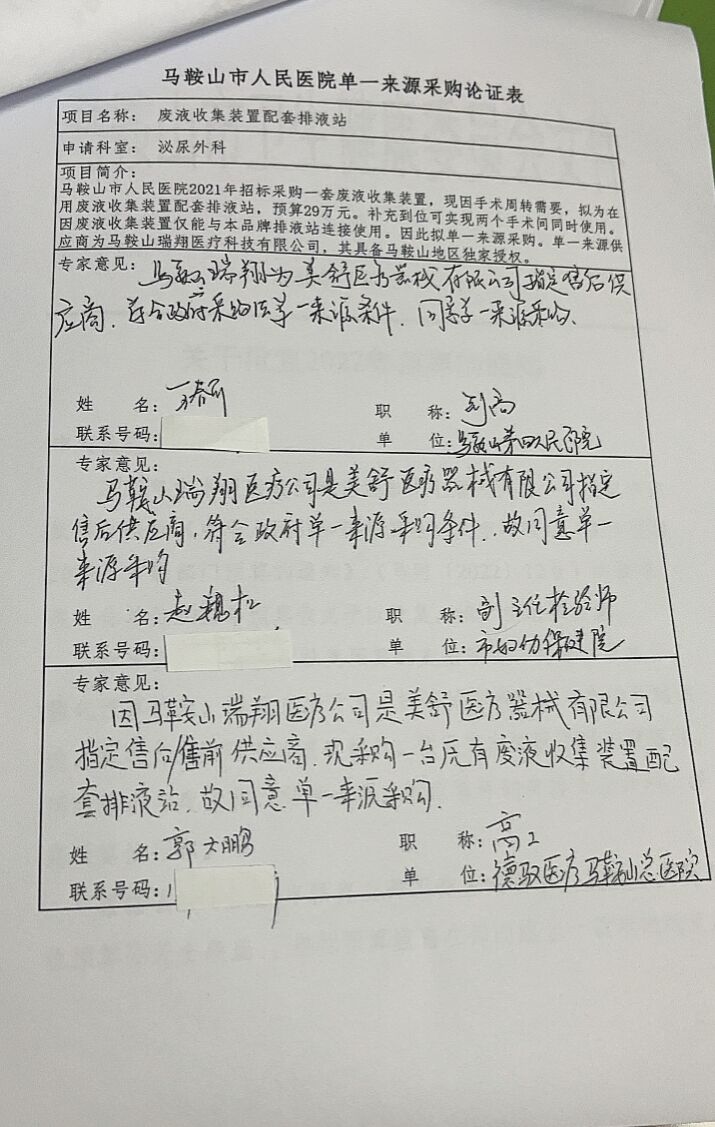 马鞍山市人民医院单一来源采购论证表
项目名称： 废液收集装置配套排液站
申请科室： 泌尿外科
项目简介：
马鞍山市人民医院2021年招标采购一套废液收集装置，现因手术周转需要，拟为在
用废液收集装置配套排液站，预算29万元。补充到位可实现两个手术间同时使用。
因废液收集装置仅能与本品牌排液站连接使用。因此拟单一来源采购。单一来源供
应商为马鞍山瑞翔医疗科技有限公司，其具备马鞍山地区独家授权。
专家意见： 马鞍山瑞翔为美舒医疗器械有限公司指定售后供
应商，符合政府采购法单一来源条件，同意单一来源采购。
姓 名： 职 称：副高
联系号码： 单 位：马鞍山第四人民医院
专家意见：
马鞍山瑞翔医疗公司是美舒医疗器械有限公司指定
售后供应商，符合政府单一来源采购条件，故同意单一
来源采购
姓 名：赵 松 职 称：副主任检验师
联系号码： 单 位：市妇幼保健院
专家意见：
因马鞍山瑞翔医疗公司是美舒医疗器械有限公司
指定售后/售前供应商，现采购一台原有废液收集装置配
套排液站，故同意单一来源采购。
姓 名：郭大鹏 职 称：高工
联系号码：1 单 位：德驭医疗马鞍山总医院